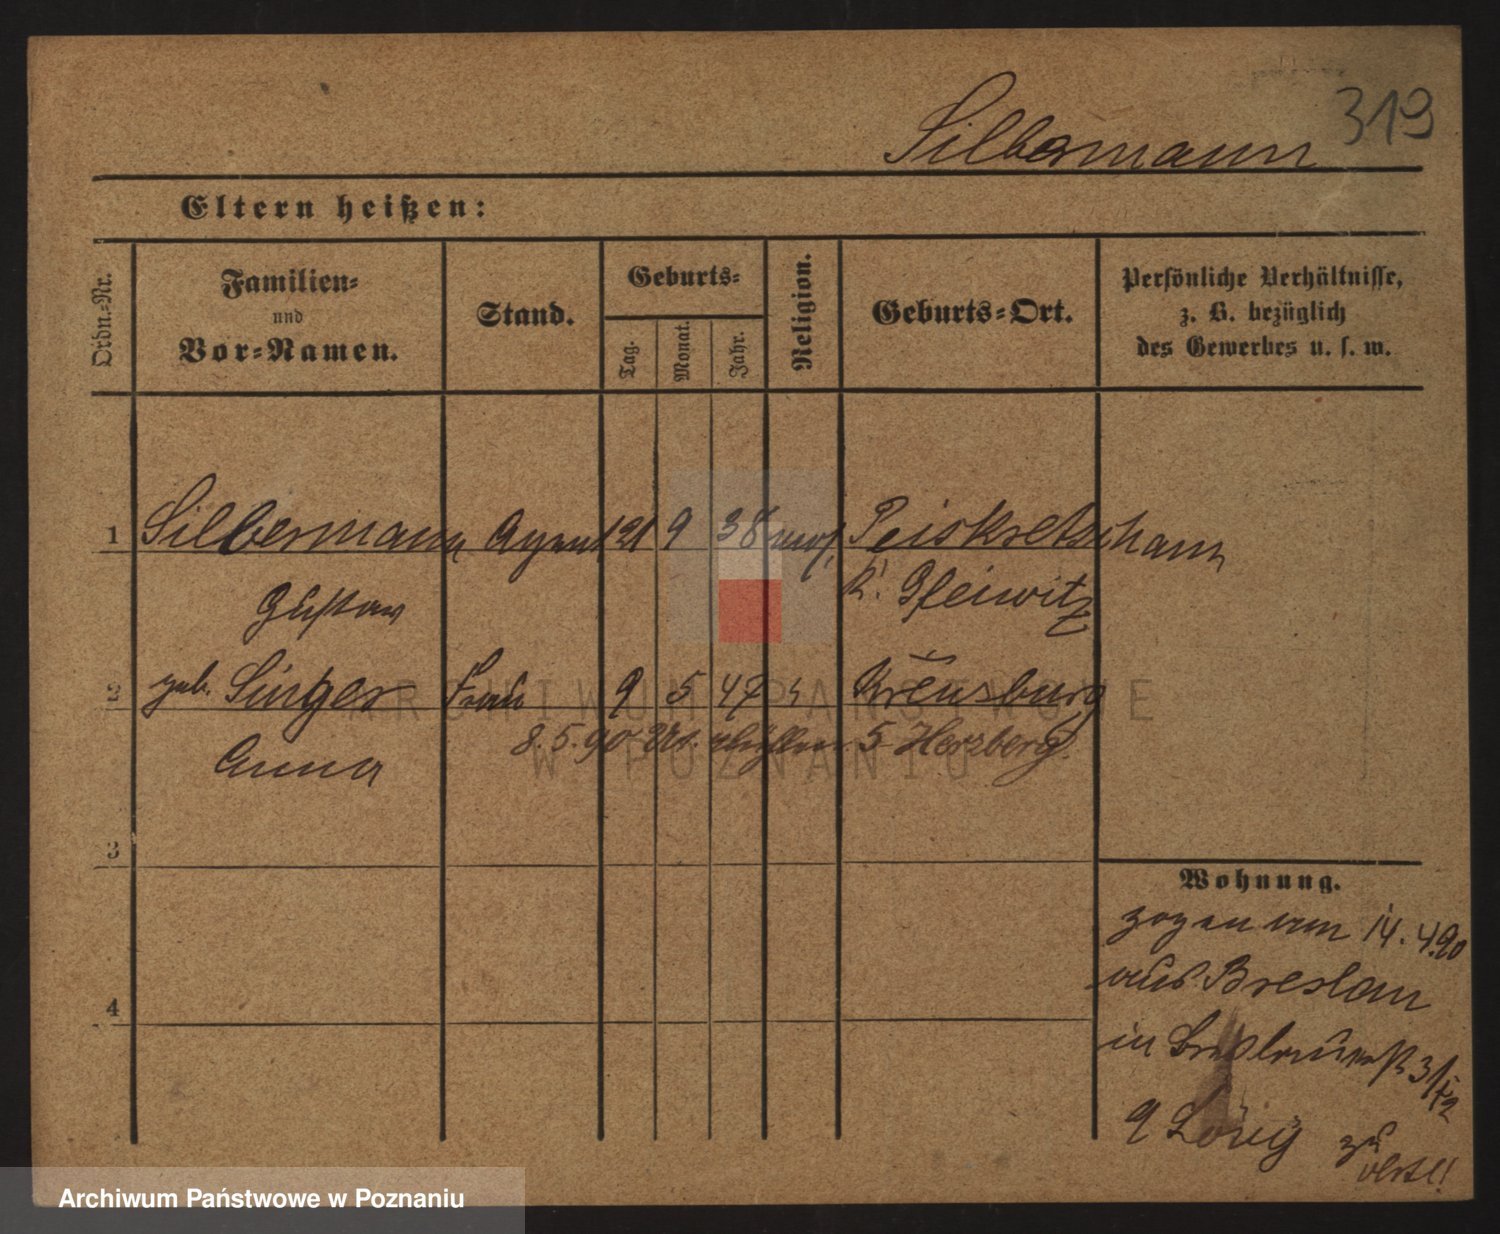 319
Silbermann
Eltern heißen:
Ordn.-Nr.
Familien-
und
Vor-Namen.
Stand.
Geburts-
Tag.
Monat.
Jahr.
Religion.
Geburts-Ort.
Persönliche Verhältnisse,
z. B. bezüglich
des Gewerbes u. s. w.
1 Silbermann Agent 21 9 38 mos. Peiskretscham
Gustav K. Gleiwitz
2 geb. Singer Frau 9 5 47 Kreuzburg
8.5.90 5 Herzberg
Anna
3
4
Wohnung.
zogen am 14.4.90
aus Breslau
in 3/
zu
ARCHIWUM PAŃSTWOWE
W POZNANIU
Archiwum Państwowe w Poznaniu